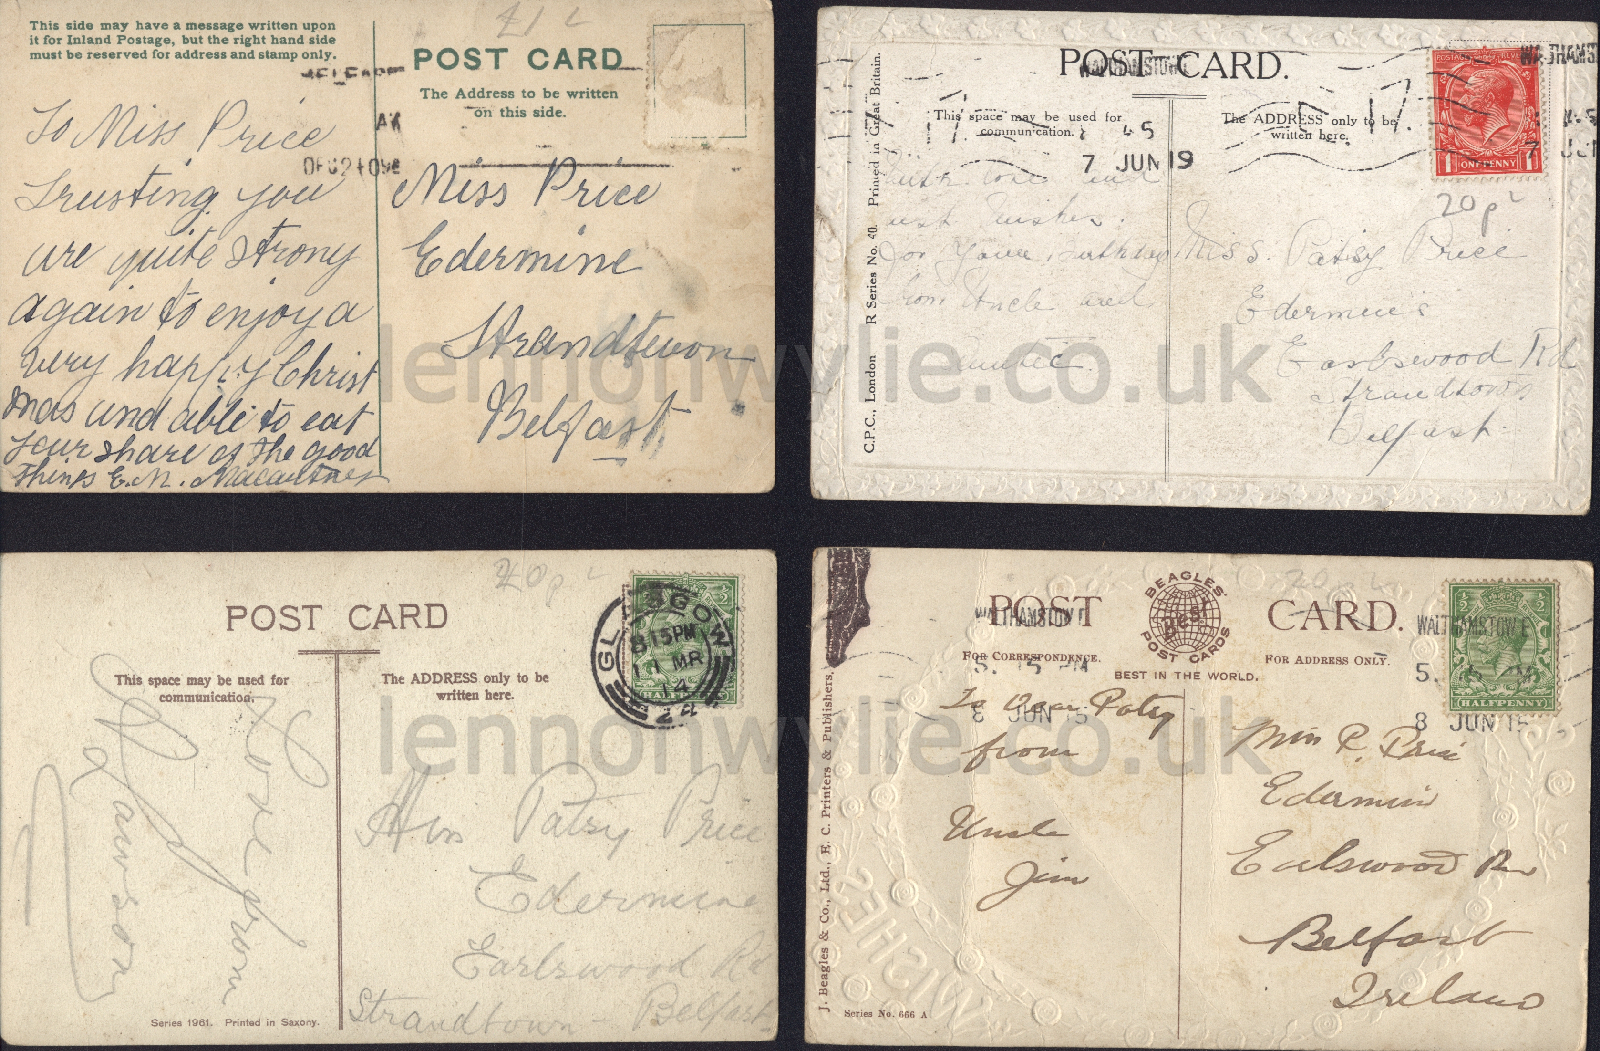 This side may have a message written upon
it for Inland Postage, but the right hand side
must be reserved for address and stamp only.
£1
POST CARD
The Address to be written
on this side.
To Miss Price
Trusting you
are quite strong
again to enjoy a
very happy Christ
mas and able to eat
your share of the good
things E. M. Macartney
Miss Price
Edermine
Strandtown
Belfast
POST CARD.
WALTHAMSTOW
WALTHAMS
This space may be used for
communication.
The ADDRESS only to be
written here.
7 JUN 19
POSTAGE
ONE PENNY
20p
C.P.C., London R Series No. 40. Printed in Great Britain.
with love and
best wishes
for your birthday
from Uncle and
auntie.
Miss. Patsy Price
Edermine
Earlswood Rd
Strandtown
Belfast
POST CARD
20p
This space may be used for
communication.
The ADDRESS only to be
written here.
GLASGOW
8 15 PM
11 MR
14
HALFPENNY
Love from
Lawson
Miss Patsy Price
Edermine
Earlswood Rd
Strandtown - Belfast
Series 1961. Printed in Saxony.
POST CARD.
BEAGLES
BEST
POST CARDS
BEST IN THE WORLD.
20p
WALTHAMSTOW E
WALTHAMSTOW E
For Correspondence.
For Address Only.
8 JUN 15
8 JUN 15
HALFPENNY
To Dear Patsy
from
Uncle
Jim
Miss P. Price
Edermine
Earlswood Rd
Belfast
Ireland
J. Beagles & Co., Ltd., E. C. Printers & Publishers.
Series No. 666 A
WISHES
lennonwylie.co.uk
lennonwylie.co.uk